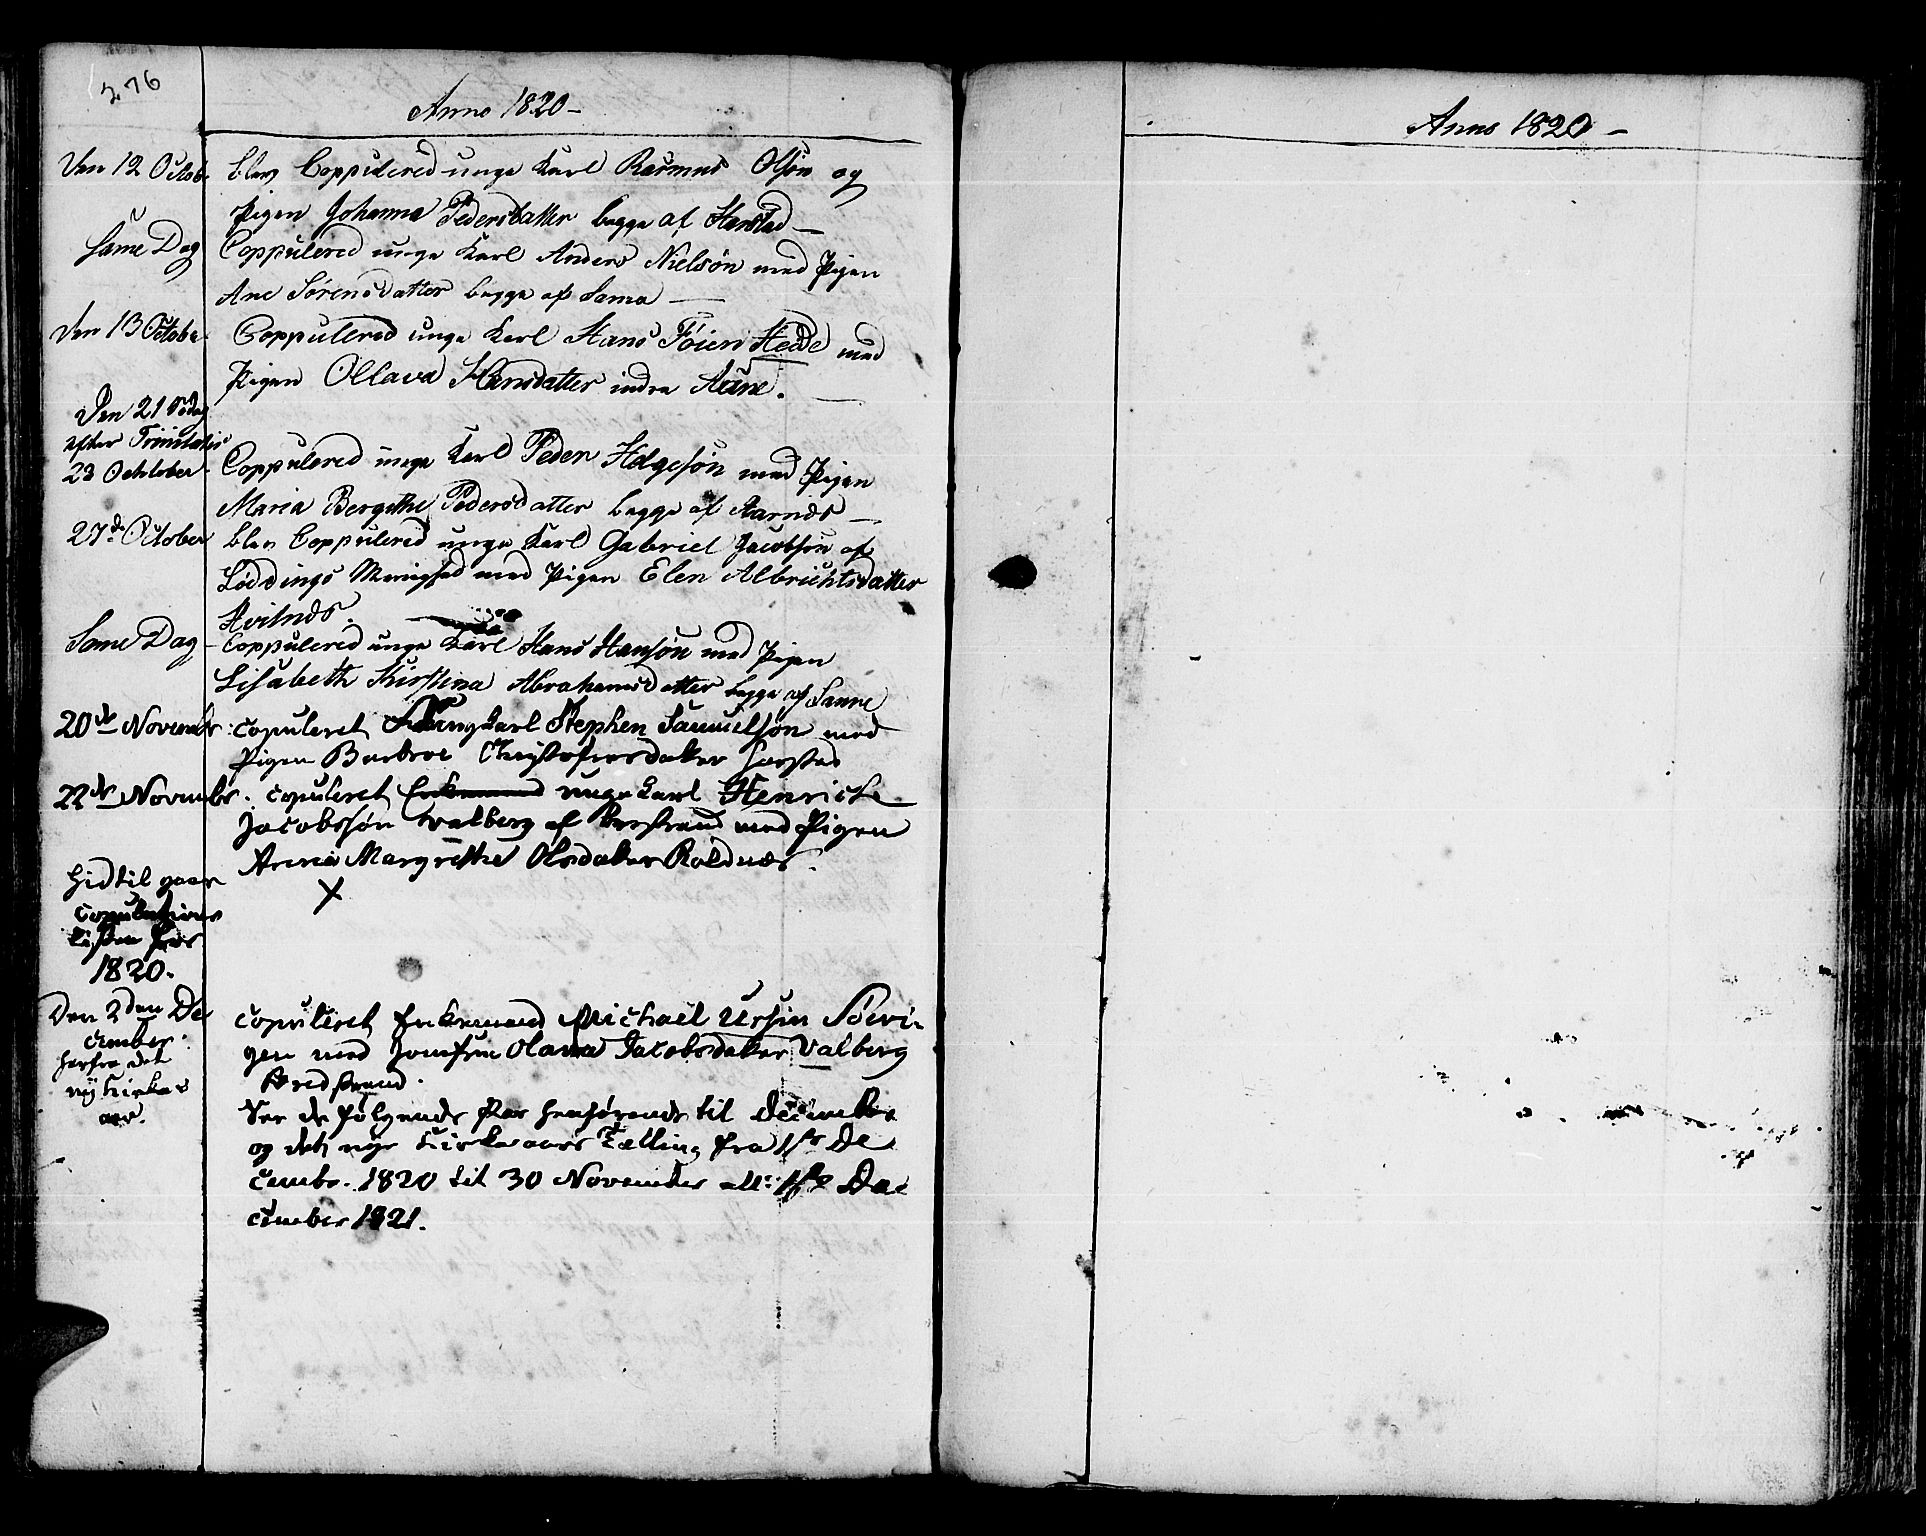 276
Anno 1820 -
Den 12 Octob. blev Coppulered unge Karl Rasmus Olsøn og
Pigen Johanna Pedersdatter begge af Harstad -
Same Dag Coppulered unge Karl Anders Nielsøn med Pigen
Ane Sørensdatter begge af Sama -
Den 13 Octobe. Coppulered unge Karl Hans Føien Hedde med
Pigen Ollava Hansdatter indra Aune. -
Den 21 Sødag
efter Trinitatis
23 Ochtober - Coppulered unge Karl Peder Helgesøn med Pigen
Maria Bergithe Pedersdatter begge af Aarnds -
27de October blev Coppulered unge Karl Gabriel Jacobsøn af
Løddings Menighed med Pigen Elen Albrichtsdatter
Hvitnds.
Same Dag - Coppulered unge Karl Hans Hansøn med Pigen
Lisabeth Kirstina Abrahamsdatter begge af Sanne
20de Novembr. copuleret Ungkarl Stephen Samuelsøn med
Pigen Barbroe Christofersdatter Harstad
22de Novembr. copuleret Enkemand unge Karl Henrich
Jacobssøn Walberg af med Pigen
Anna Margrethe Olsdatter Roldnæs.
Hidtil gaar
Copulations
listen for
1820.
Den 2den De copuleret Enkemand Michael Ursin Sørvi-
cember. gen med Jomfru Olava Jacobsdatter Valberg
herfra det
nÿ Kirke-
aar.
See de følgende Par henførende til December
og det nye Kirkeaars Tælling fra 1ste De
cembr. 1820 til 30 November all: 1ste De
cember 1821.
Anno 1820 -